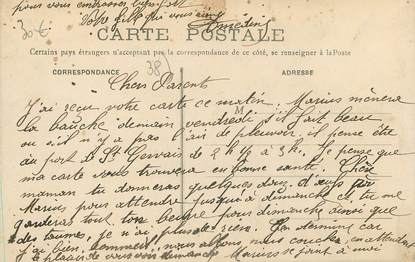 pour vous embrasser bien fort
Votre fille qui vous aime
30 €
CARTE POSTALE
Certains pays étrangers n'acceptent pas la correspondance de ce côté, se renseigner à la Poste
CORRESPONDANCE
ADRESSE
Chers Parents
J'ai reçu votre carte ce matin. Marius mènera
la bauche demain vendredi s'il fait beau
ou s'il n'y a pas l'air de pleuvoir il pense être
au port de St Gervais de 2h ½ à 3h. Je pense que
ma carte vous trouvera en bonne santé. Chère
maman tu donneras quelques douz. d'œufs par
Marius pour attendre jusqu'à dimanche et tu me
garderas tout ton beurre pour dimanche ainsi que
des taumes, je n'ai plus rien. Je termine car
j'ai bien sommeil nous allons nous coucher en attendant
le plaisir de vous voir dimanche Marius se joint à moi